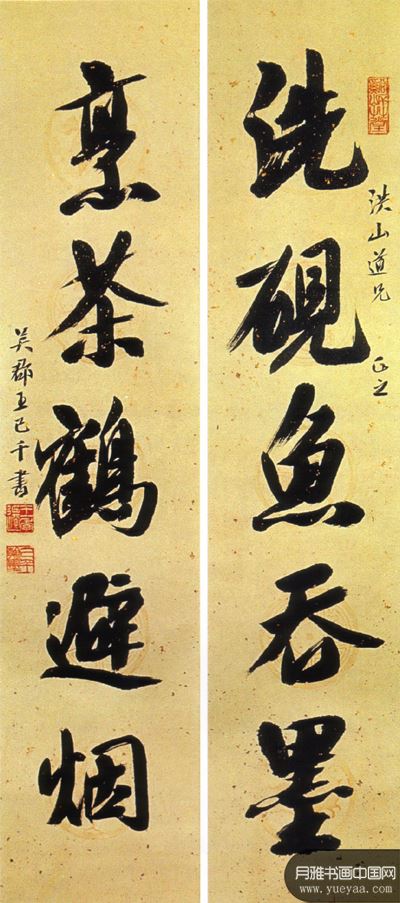 洗硯魚吞墨
洪山道兄 正之
烹茶鶴避烟
吴郡王己千書
月雅书画中国网
www.yueyaa.com